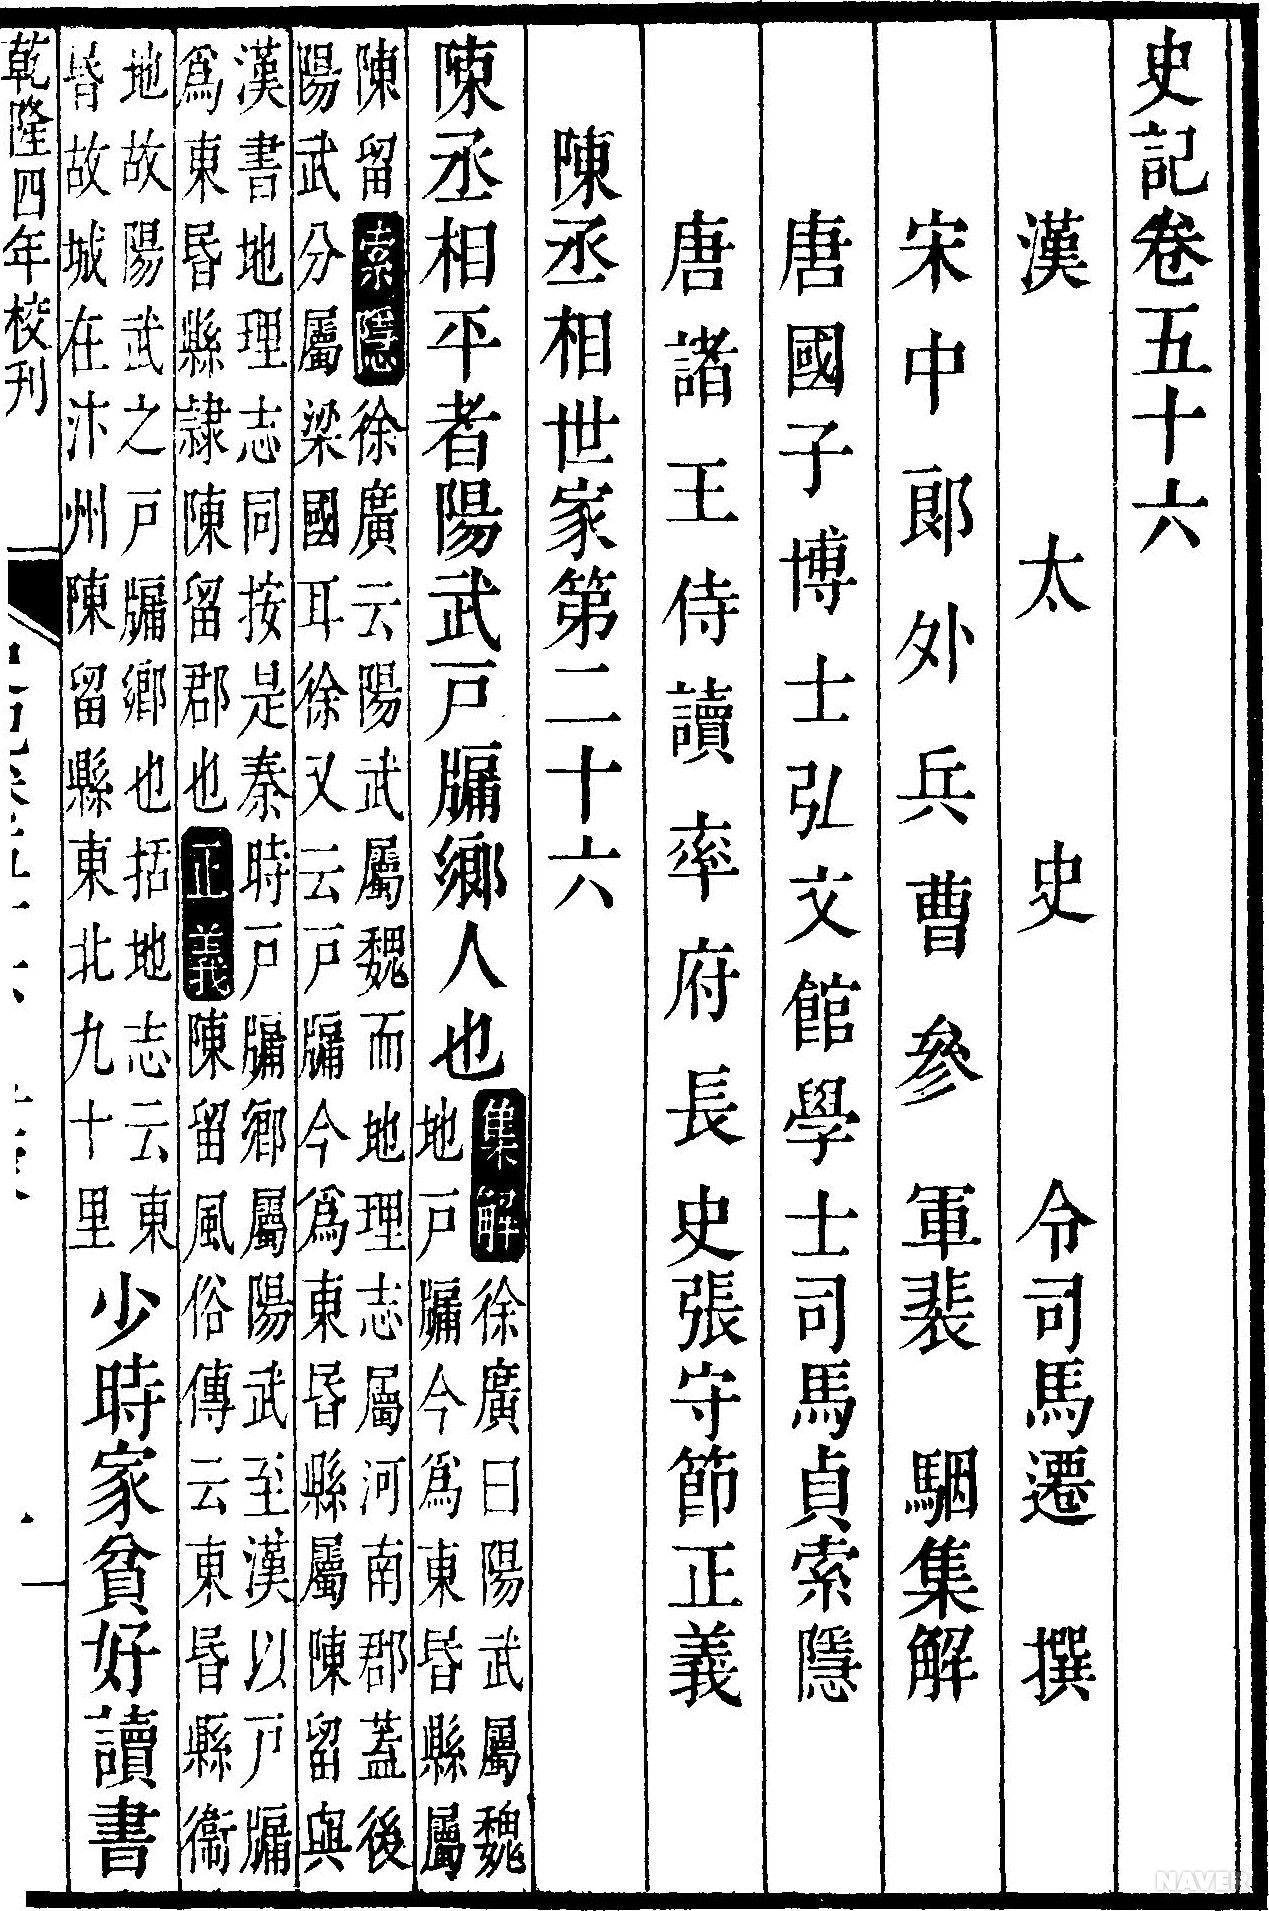 史記卷五十六
漢太史令司馬遷撰
宋中郎外兵曹參軍裴駰集解
唐國子博士弘文館學士司馬貞索隱
唐諸王侍讀率府長史張守節正義
陳丞相世家第二十六
陳丞相平者陽武戶牖鄉人也集解徐廣曰陽武屬魏
地戶牖今爲東昏縣屬
陳留索隱徐廣云陽武屬魏而地理志屬河南郡蓋後
陽武分屬梁國耳徐又云戶牖今爲東昏縣屬陳留與
漢書地理志同按是秦時戶牖鄉屬陽武至漢以戶牖
爲東昏縣隷陳留郡也正義陳留風俗傳云東昏縣衞
地故陽武之戶牖鄉也括地志云東
昏故城在汴州陳留縣東北九十里
少時家貧好讀書
乾隆四年校刊
NAVER